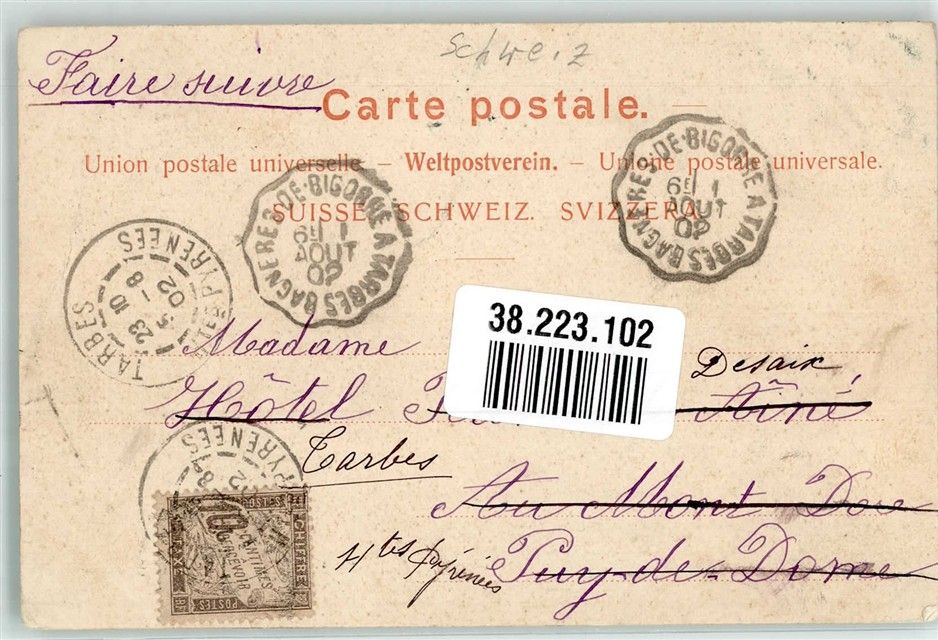 Schweiz
Faire suivre
Carte postale.
Union postale universelle – Weltpostverein. – Unione postale universale.
SUISSE. SCHWEIZ. SVIZZERA.
BAGNERES-DE-BIGORRE A TARBES
6E 1
AOUT
02
BAGNERES-DE-BIGORRE A TARBES
6E 1
AOUT
02
TARBES
23 10
1 - 8
02
PYRENEES
38.223.102
Madame
Desaix
Hôtel Aîné
Tarbes
Au Mont Dore
Htes Pyrénées
Puy-de-Dome
PYRENEES
CHIFFRE
10
CENTIMES
A PERCEVOIR
POSTES